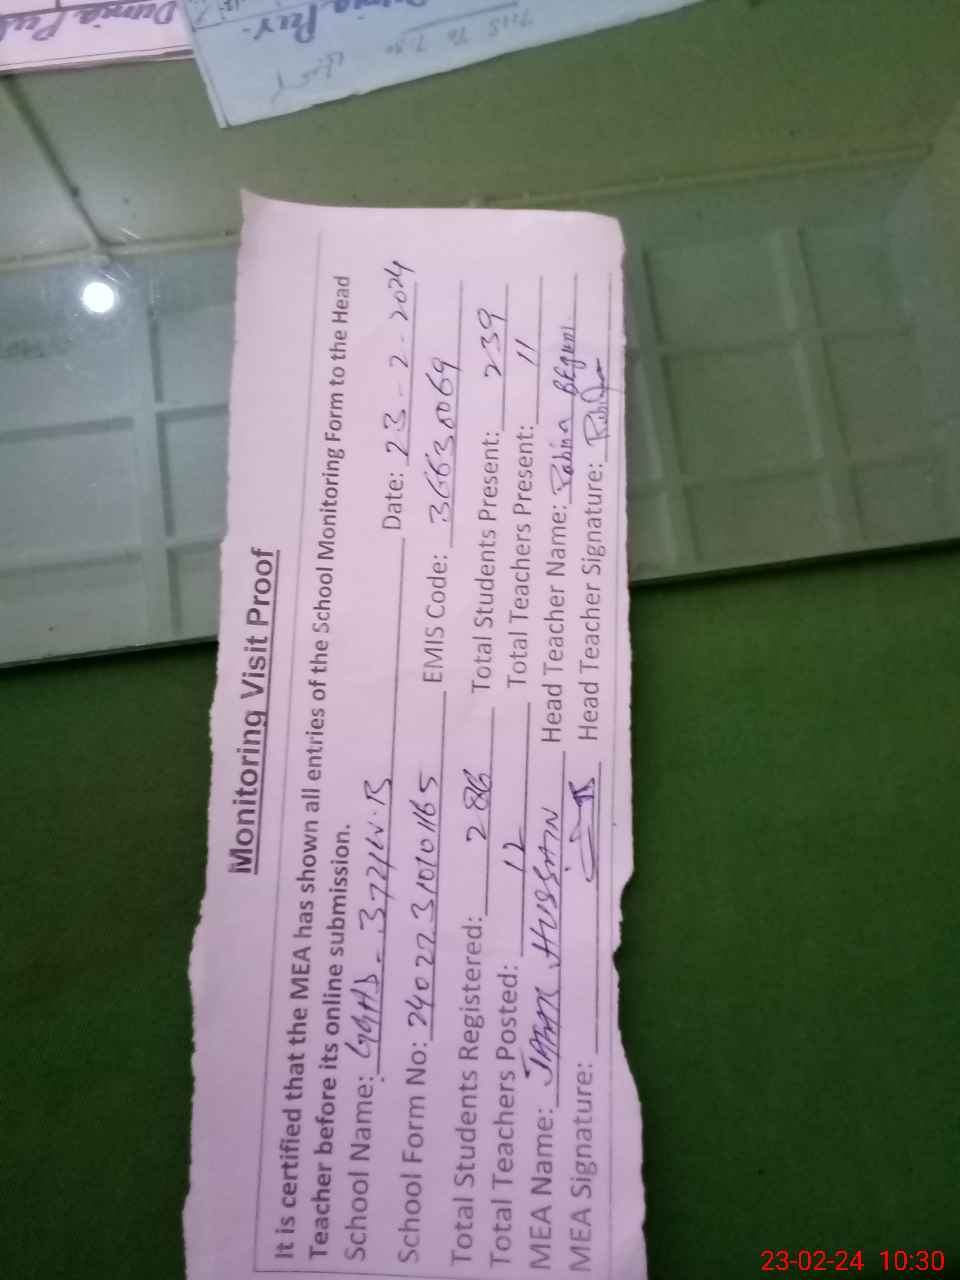 Dunia Pur
Dunia Pur.
7:15 To 7:30
Monitoring Visit Proof
It is certified that the MEA has shown all entries of the School Monitoring Form to the Head
Teacher before its online submission.
School Name: GGHS - 372/W.B Date: 23-2-2024
School Form No: 24022310101165 EMIS Code: 36630069
Total Students Registered: 286 Total Students Present: 239
Total Teachers Posted: 12 Total Teachers Present: 11
MEA Name: HUSSAIN Head Teacher Name: Robina BEgum
MEA Signature: Head Teacher Signature:
23-02-24 10:30